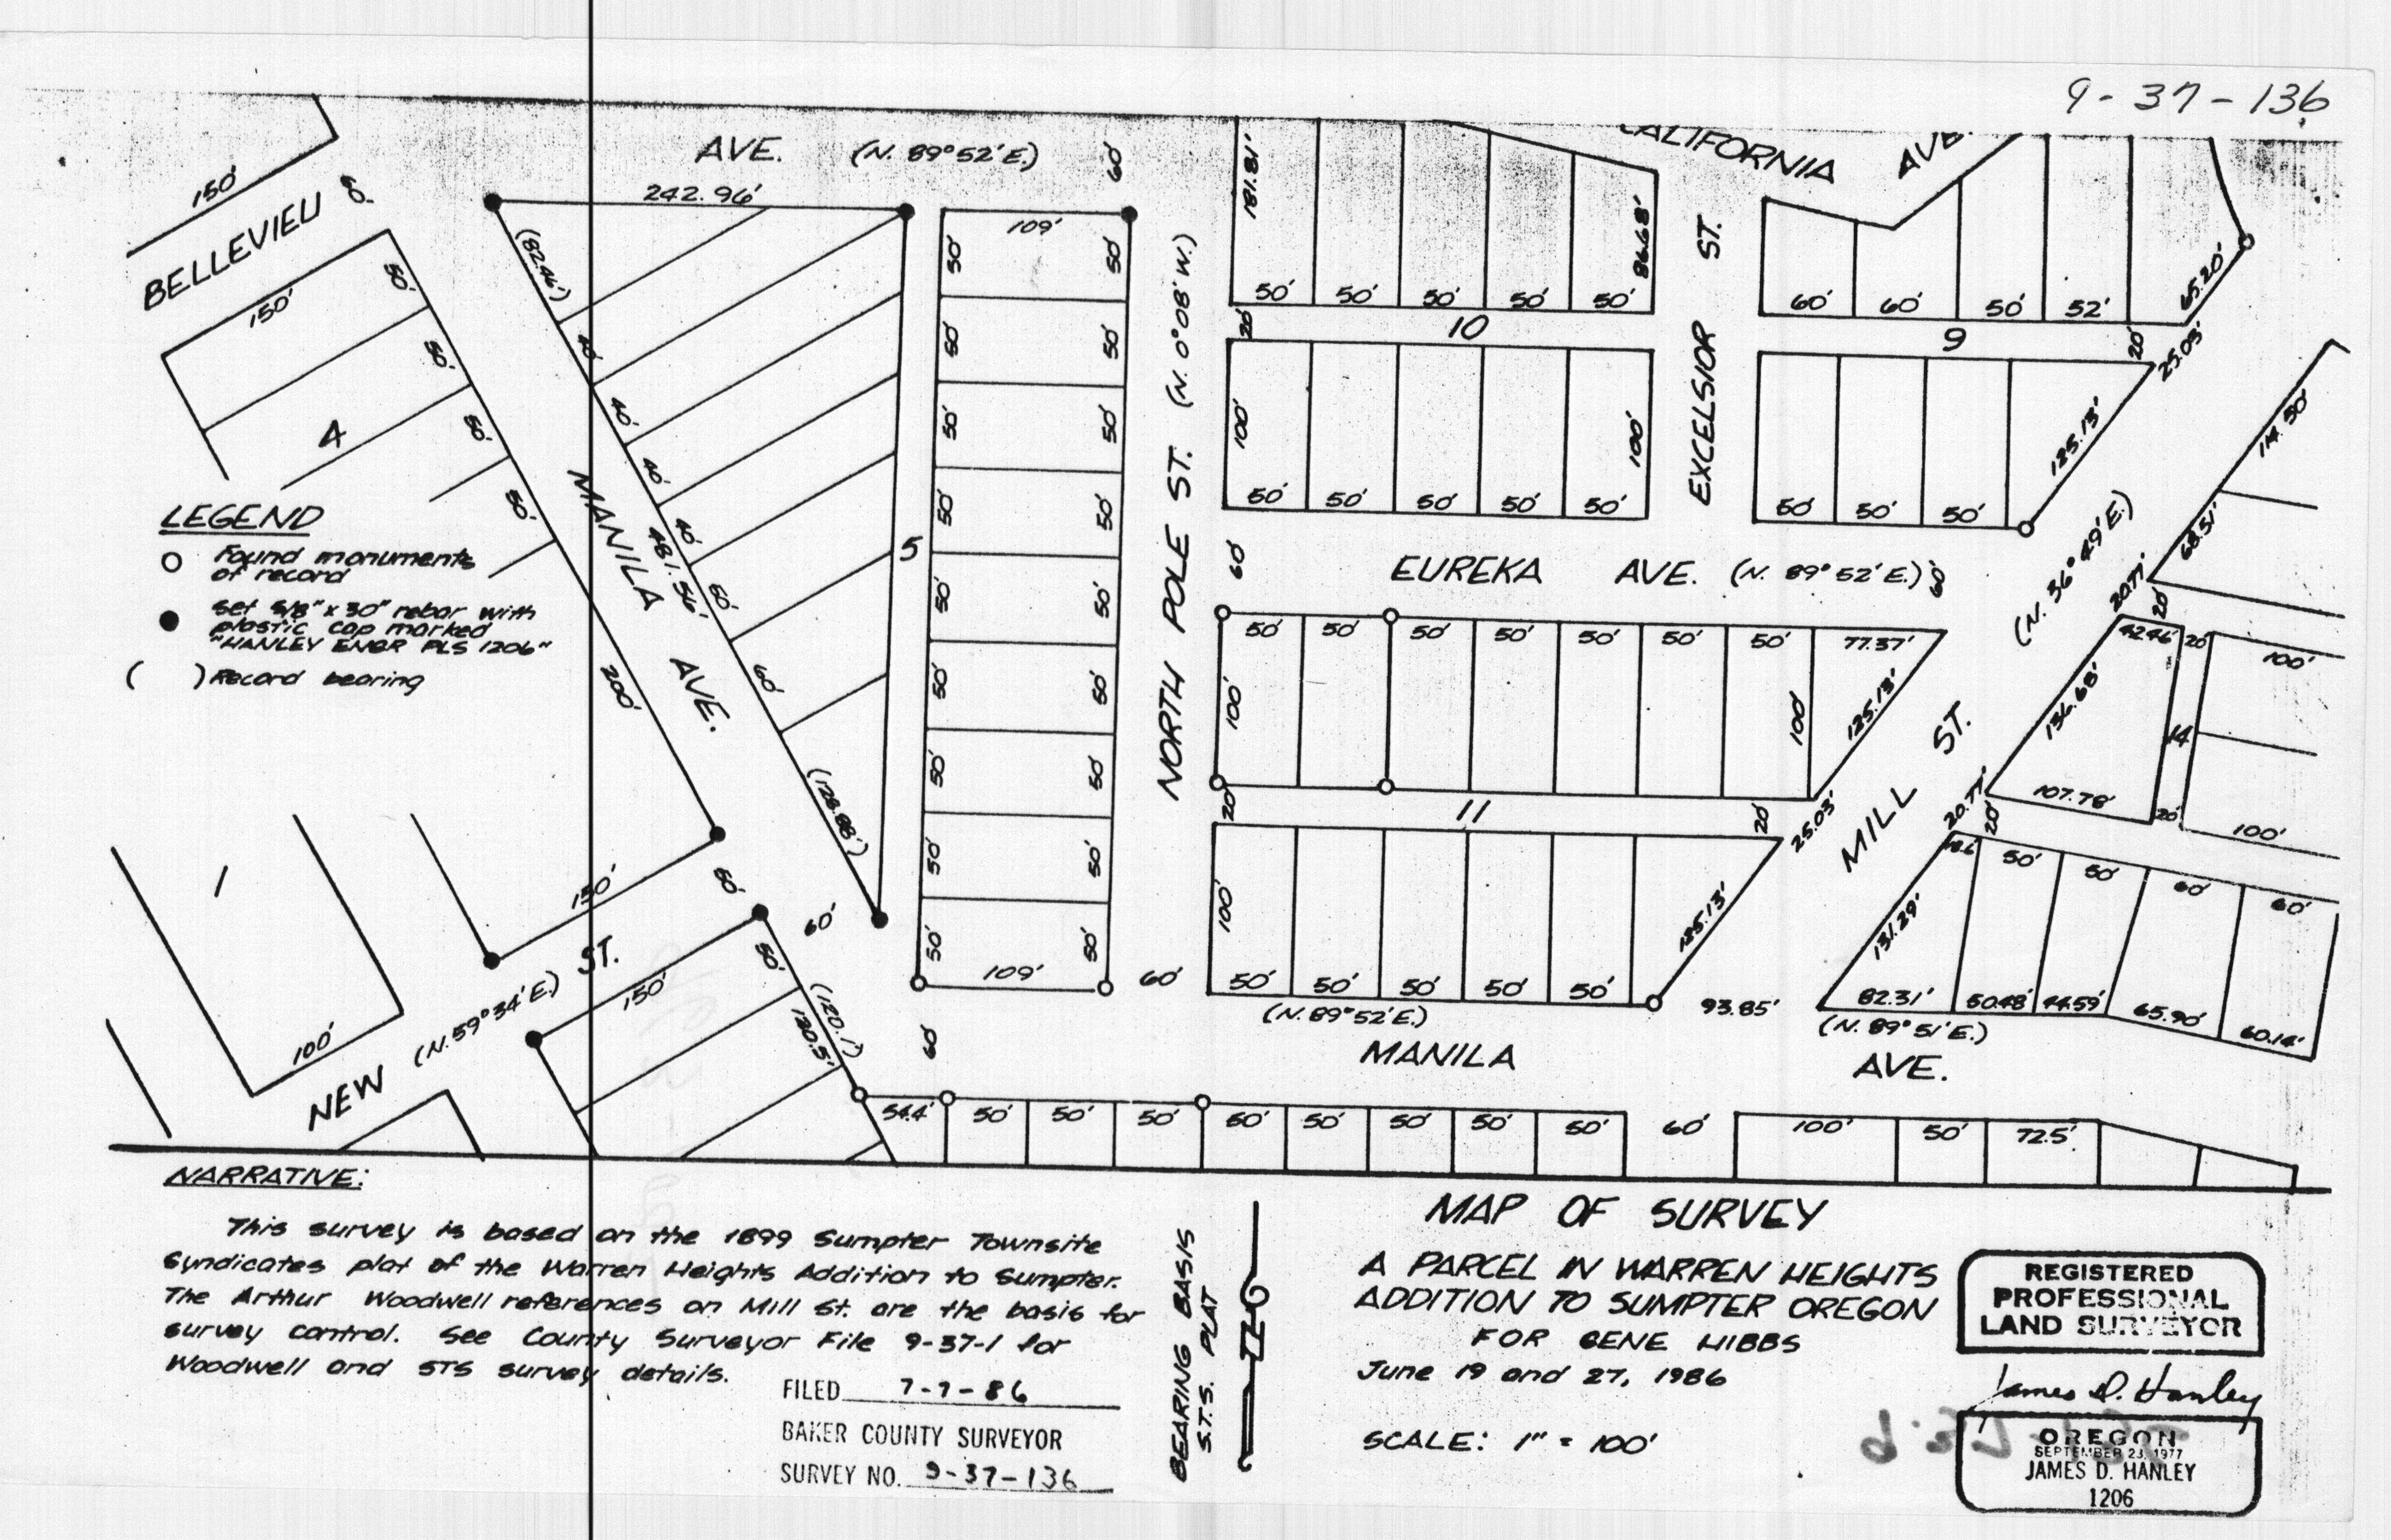 9-37-136
AVE. (N. 89°52'E.)
60'
CALIFORNIA AVE.
150'
BELLEVIEU
60'
242.96'
109'
181.81'
86.68'
EXCELSIOR ST.
65.20'
25.03'
(82.46')
150'
50'
50'
50'
50'
4
40'
40'
40'
40'
50'
60'
481.54'
(128.88')
MANILA AVE.
200'
5
50' 50'
50' 50'
50' 50'
50' 50'
50' 50'
50' 50'
50' 50'
50' 50'
50' 50'
109'
NORTH POLE ST. (N. 0°08'W.)
50' 50' 50' 50' 50'
20'
10
100' 100'
50' 50' 50' 50' 50'
60' 60' 50' 52'
9
20'
50' 50' 50'
125.13'
114.50'
68.51'
(N. 36°49'E.)
LEGEND
Found monuments
of record
Set 5/8" x 30" rebar with
plastic cap marked
"HANLEY ENGR PLS 1206"
( ) Record bearing
60'
EUREKA AVE. (N. 89°52'E.)
60'
20.77'
20'
42.46'
20'
100'
50' 50' 50' 50' 50' 50' 50' 77.37'
100' 100'
125.13'
136.68'
14
107.78'
20'
100'
MILL ST.
20'
11
20'
25.03'
20.77'
20'
50' 50' 60' 60'
100'
125.13'
131.29'
50' 50' 50' 50' 50'
60'
93.85'
82.31' 50.48' 44.59' 65.90' 60.14'
(N. 89°52'E.)
(N. 89°51'E.)
MANILA AVE.
1
150'
60'
60'
100'
NEW (N. 59°34'E.) ST.
150'
50'
(120.1')
120.5'
60'
54.4' 50' 50' 50' 50' 50' 50' 50' 50' 60' 100' 50' 72.5'
NARRATIVE:
This survey is based on the 1899 Sumpter Townsite
Syndicates plat of the Warren Heights Addition to Sumpter.
The Arthur Woodwell references on Mill St. are the basis for
survey control. See County Surveyor File 9-37-1 for
Woodwell and STS survey details.
FILED 7-7-86
BAKER COUNTY SURVEYOR
SURVEY NO. 9-37-136
BEARING BASIS
S.T.S. PLAT
MAP OF SURVEY
A PARCEL IN WARREN HEIGHTS
ADDITION TO SUMPTER OREGON
FOR GENE HIBBS
June 19 and 27, 1986
SCALE: 1" = 100'
REGISTERED
PROFESSIONAL
LAND SURVEYOR
James D. Hanley
OREGON
SEPTEMBER 23, 1977
JAMES D. HANLEY
1206